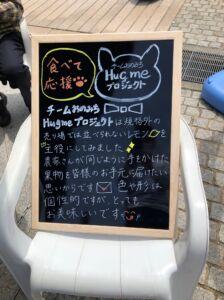 食べて
応援
チームおのみち
Hug me
プロジェクト
チームおのみち
Hug me プロジェクトは規格外の
売り場では並べられないレモンを
主役にしてみました
農家さんが同じように手をかけた
果物を皆様のお手元に届けたい
思いからです 色や形は
個性的ですが、とっても
お美味しいです